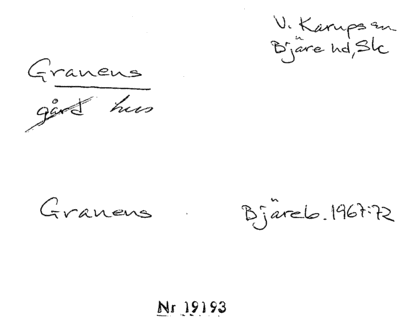 V. Karups sn
Bjäre hd, Sk
Granens
gård hus
Granens Bjäreb. 1967:72
Nr 19193